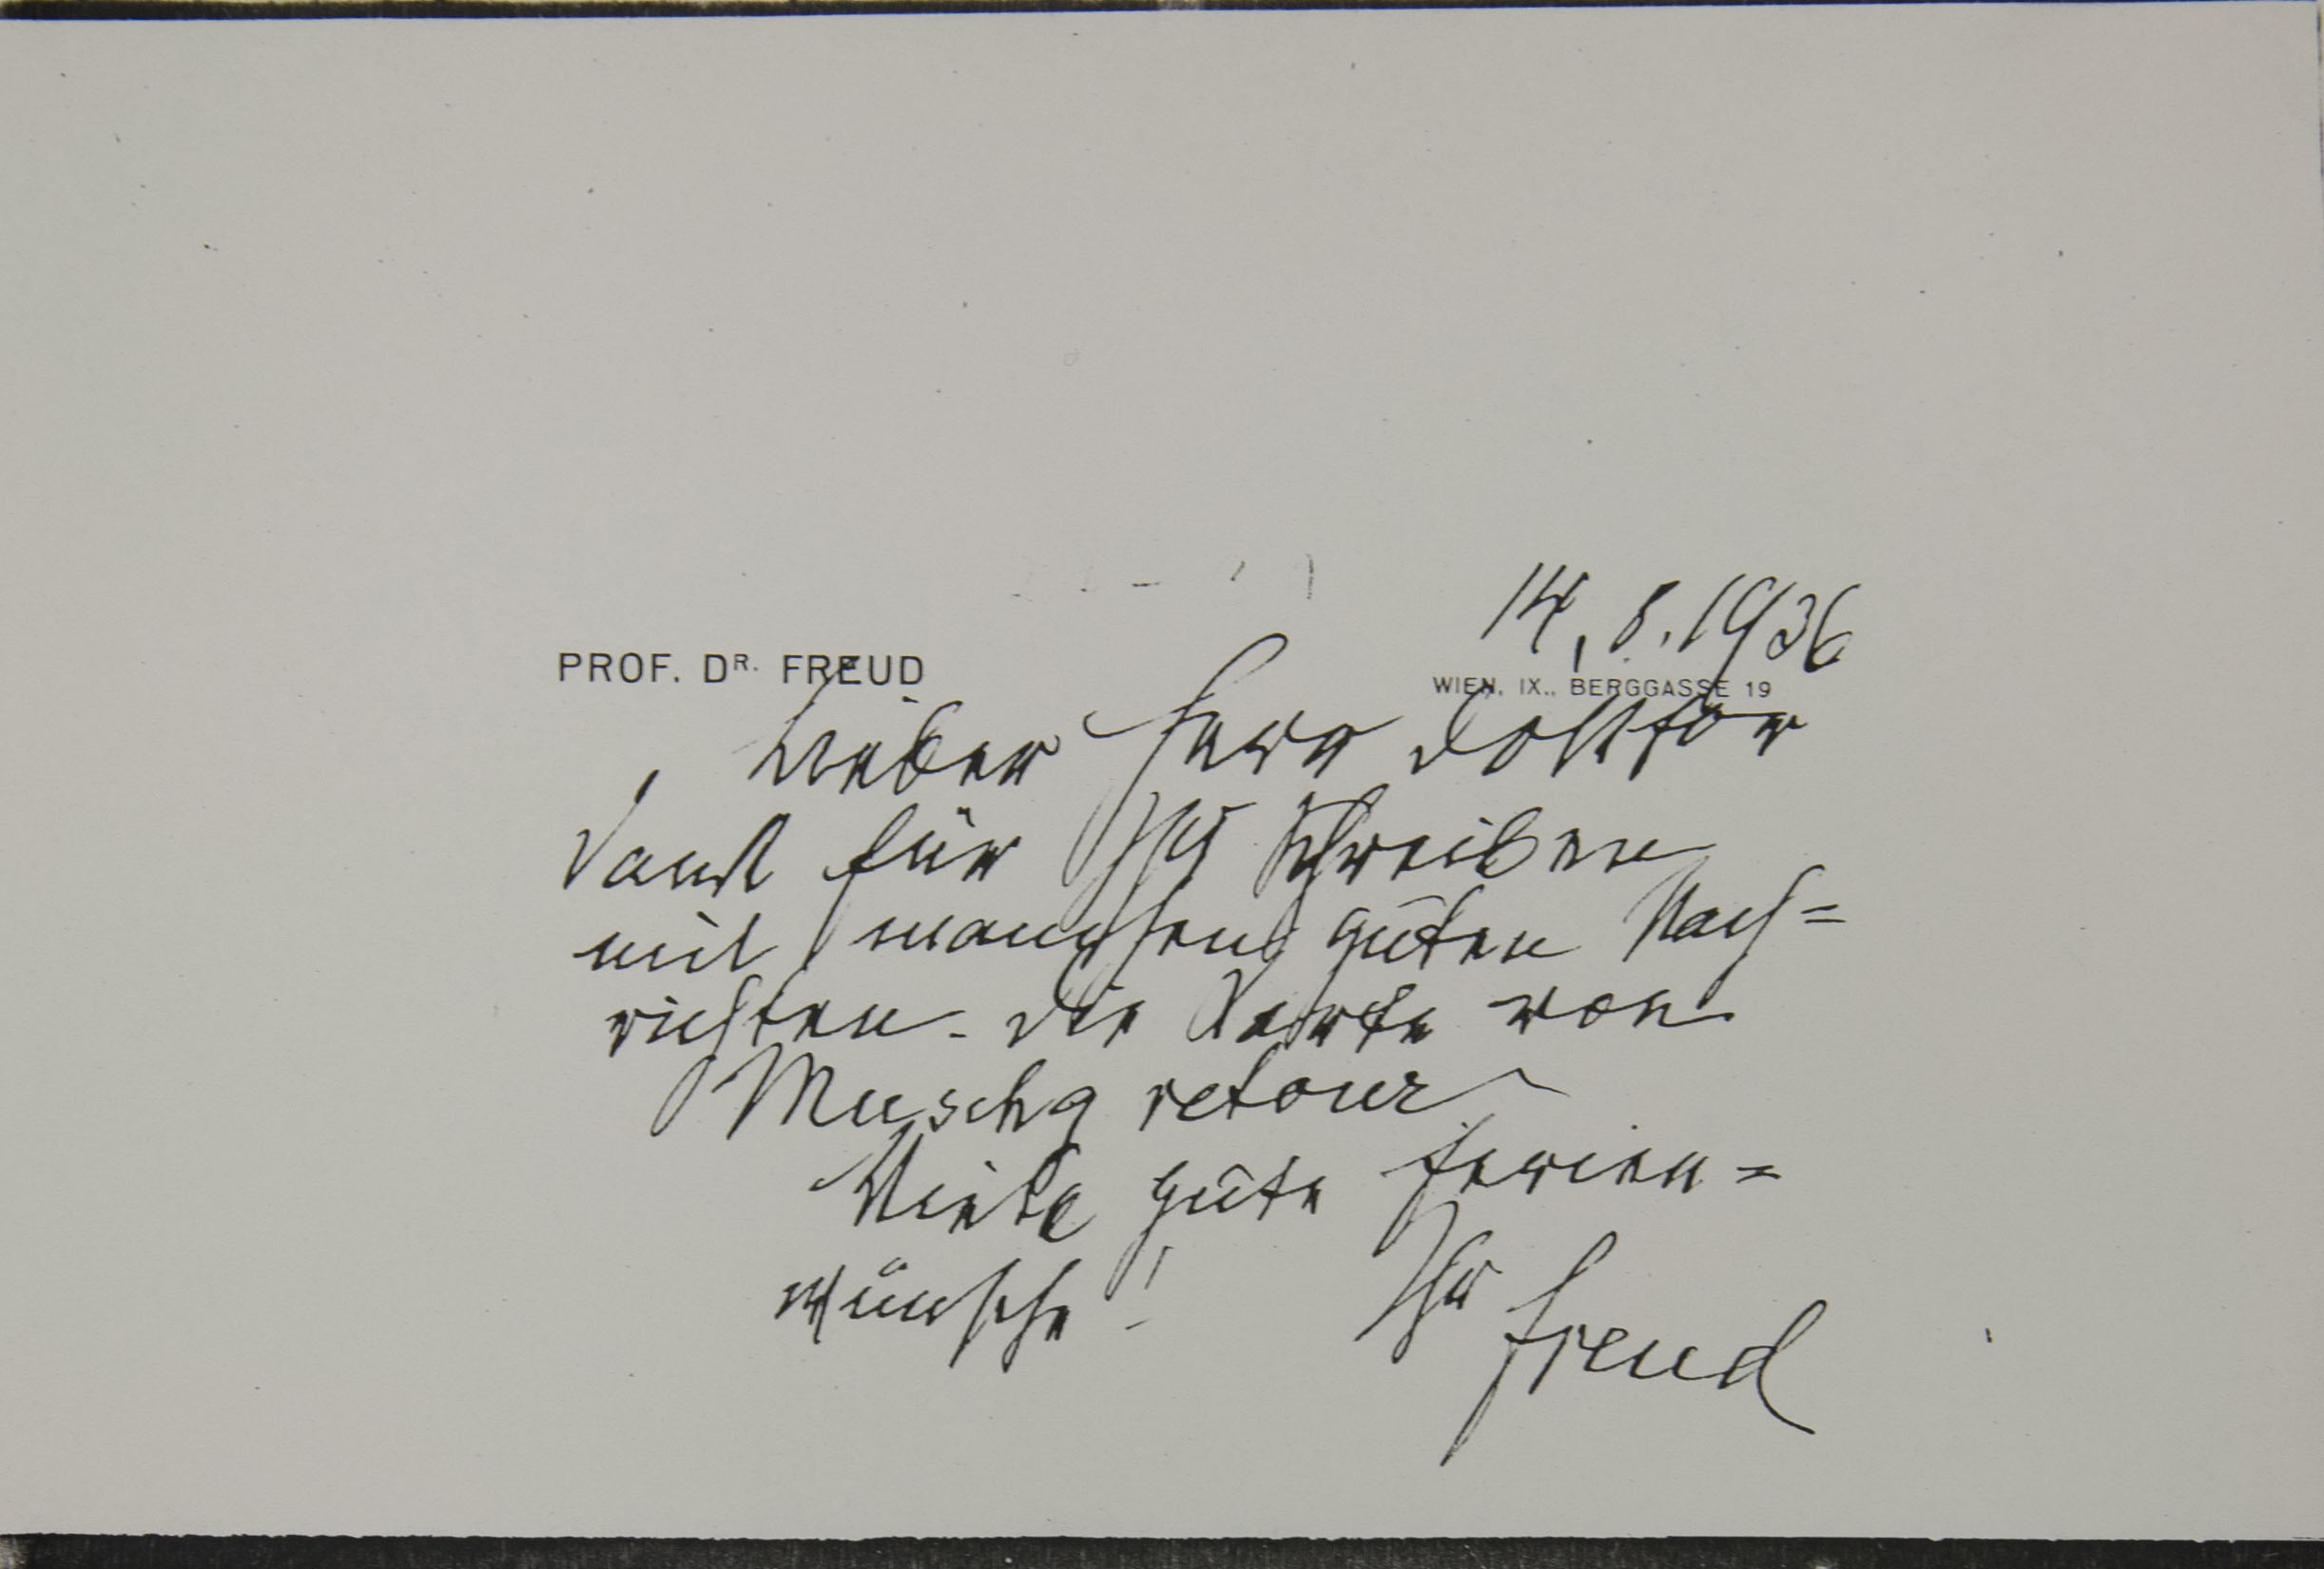 14.8.1936
PROF. DR. FREUD
WIEN, IX., BERGGASSE 19
Lieber Herr Doktor
Dank für Ihr Schreiben
mit manchen guten Nach=
richten. Die Karte von
Muschg retour
Viele gute Ferien=
wünsche!
Ihr
Freud